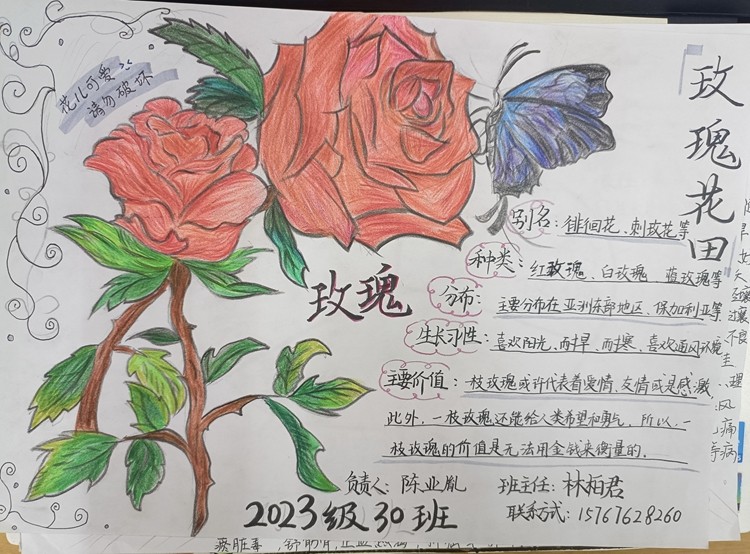 花儿可爱
请勿破坏
玫瑰花田
玫瑰
别名：徘徊花、刺玫花等
种类：红玫瑰、白玫瑰、蓝玫瑰等
分布：主要分布在亚洲东部地区、保加利亚等
生长习性：喜欢阳光，耐旱、耐寒，喜欢通风环境
主要价值：一枝玫瑰或许代表着爱情、友情或是感激，
此外，一枝玫瑰还能给人类希望和勇气，所以，一
枝玫瑰的价值是无法用金钱来衡量的.
负责人：陈业胤 班主任：林柏君
2023级30班 联系方式：15767628260